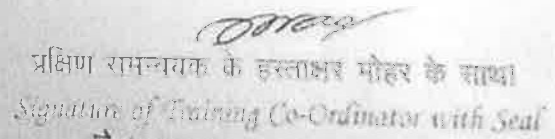 प्रक्षिण समन्वयक के हस्ताक्षर मोहर के साथा
Signature of Training Co-Ordinator with Seal